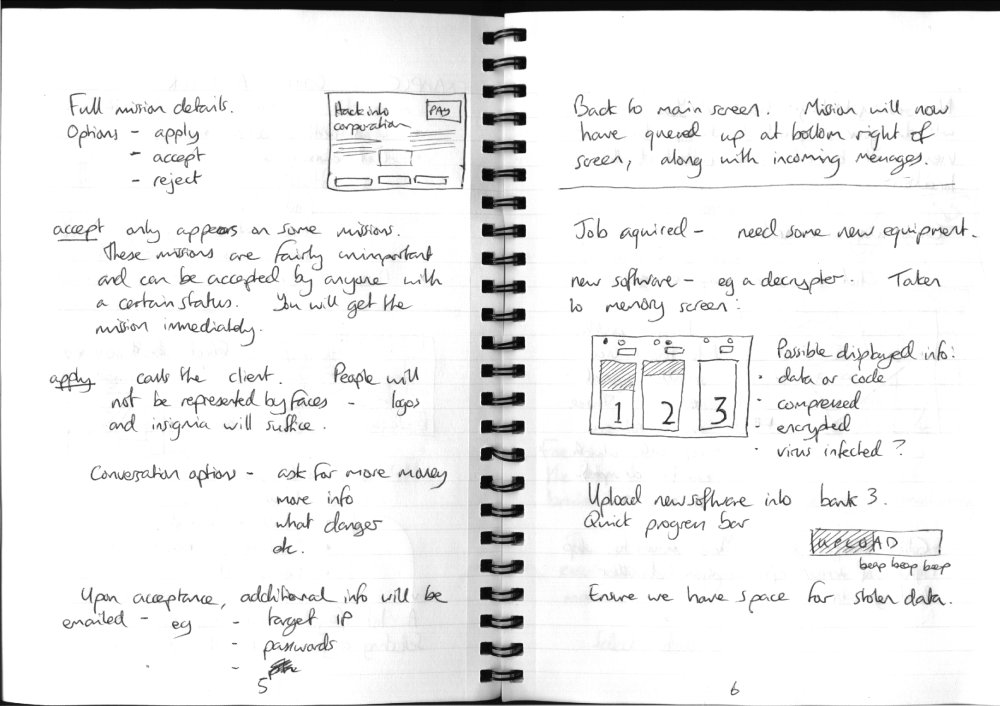 Full mission details.
Options - apply
- accept
- reject
Hack into
corporation
PAY
accept only appears on some missions.
These missions are fairly unimportant
and can be accepted by anyone with
a certain status. You will get the
mission immediately.
apply calls the client. People will
not be represented by faces - logos
and insignia will suffice.
Conversation options - ask for more money
more info
what danger
etc.
Upon acceptance, additional info will be
emailed - eg - target IP
- passwords
-
5
Back to main screen. Mission will now
have queued up at bottom right of
screen, along with incoming messages.
Job aquired - need some new equipment.
new software - eg a decrypter. Taken
to memory screen:
1 2 3
Possible displayed info:
· data or code
· compressed
· encrypted
· virus infected?
Upload new software into bank 3.
Quick progress bar
UPLOAD
beep beep beep
Ensure we have space for stolen data.
6